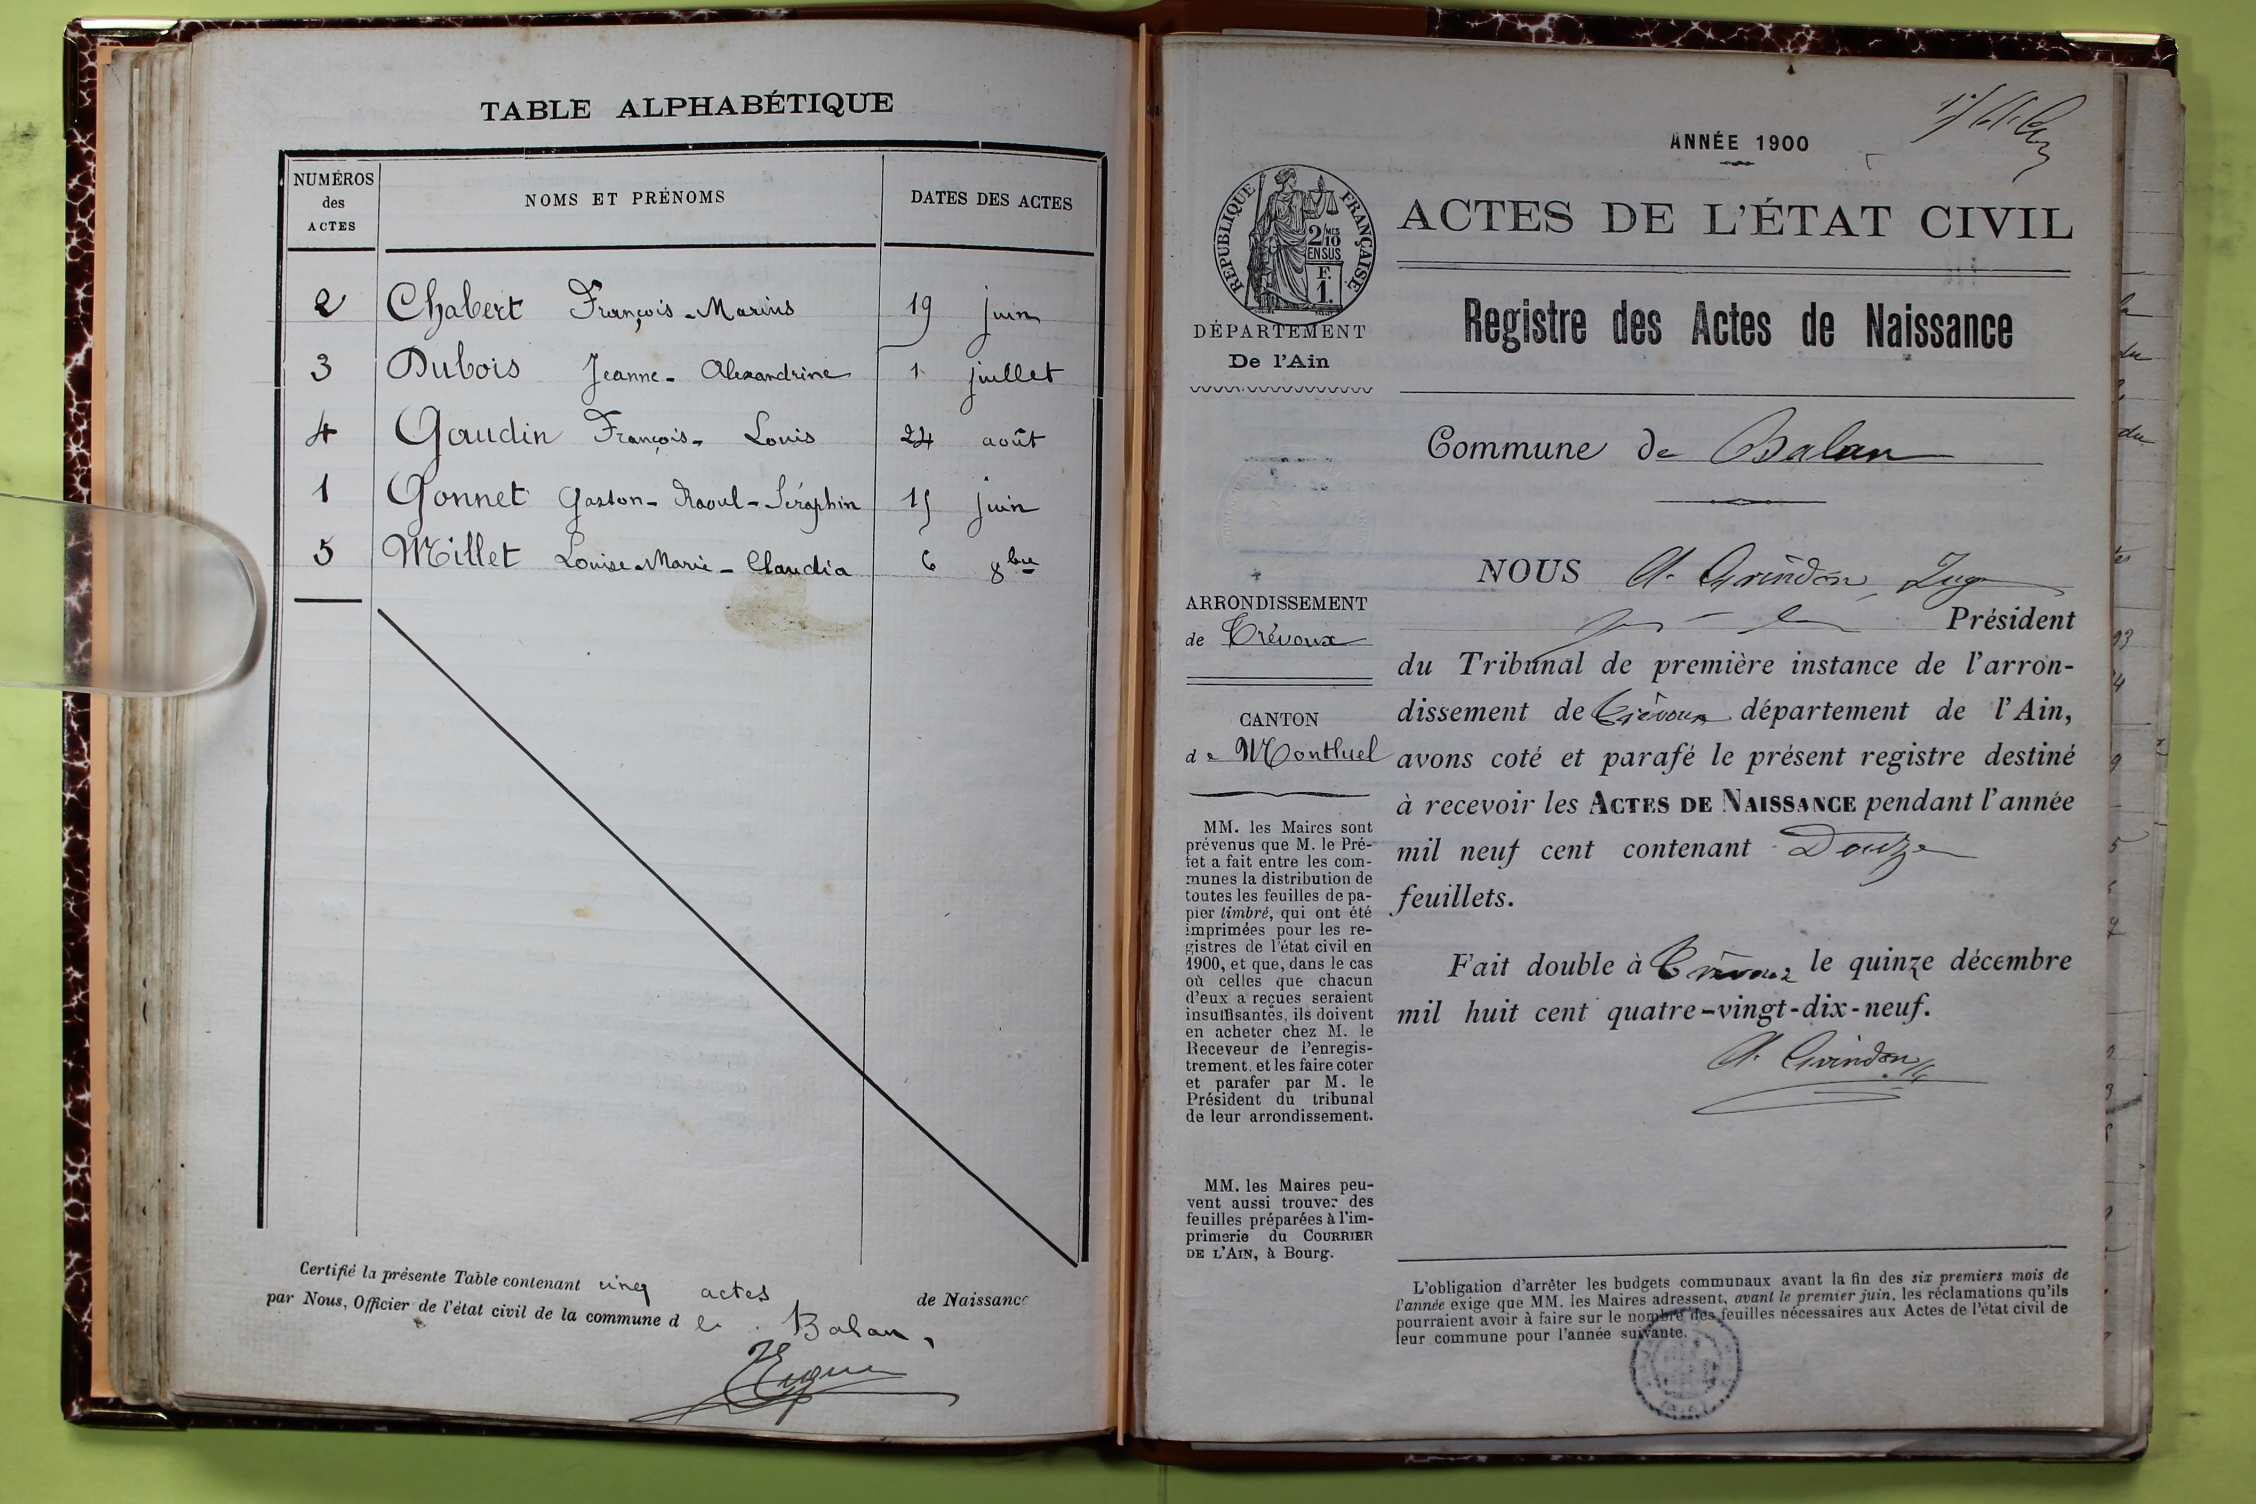 TABLE ALPHABÉTIQUE
NUMÉROS des ACTES
NOMS ET PRÉNOMS
DATES DES ACTES
2 Chabert François-Marius 19 juin
3 Dubois Jeanne-Alexandrine 1 juillet
4 Gaudin François-Louis 24 août
1 Gonnet Gaston-Raoul-Séraphin 15 juin
5 Millet Louise-Marie-Claudia 6 8bre
Certifié la présente Table contenant cinq actes de Naissance
par Nous, Officier de l'état civil de la commune de Balan,
ANNÉE 1900
RÉPUBLIQUE FRANÇAISE
2/10 MES
EN SUS
F.
1.
DÉPARTEMENT
De l'Ain
ACTES DE L'ÉTAT CIVIL
Registre des Actes de Naissance
Commune de Balan
ARRONDISSEMENT
de Trévoux
CANTON
de Montluel
MM. les Maires sont
prévenus que M. le Pré-
fet a fait entre les com-
munes la distribution de
toutes les feuilles de pa-
pier timbré, qui ont été
imprimées pour les re-
gistres de l'état civil en
1900, et que, dans le cas
où celles que chacun
d'eux a reçues seraient
insuffisantes, ils doivent
en acheter chez M. le
Receveur de l'enregis-
trement. et les faire coter
et parafer par M. le
Président du tribunal
de leur arrondissement.
MM. les Maires peu-
vent aussi trouver des
feuilles préparées à l'im-
primerie du COURRIER
DE L'AIN, à Bourg.
NOUS A. Grindon, Juge
Président
du Tribunal de première instance de l'arron-
dissement de Trévoux département de l'Ain,
avons coté et parafé le présent registre destiné
à recevoir les ACTES DE NAISSANCE pendant l'année
mil neuf cent contenant Douze
feuillets.
Fait double à Trévoux le quinze décembre
mil huit cent quatre-vingt-dix-neuf.
A. Grindon
L'obligation d'arrêter les budgets communaux avant la fin des six premiers mois de
l'année exige que MM. les Maires adressent, avant le premier juin, les réclamations qu'ils
pourraient avoir à faire sur le nombre des feuilles nécessaires aux Actes de l'état civil de
leur commune pour l'année suivante.